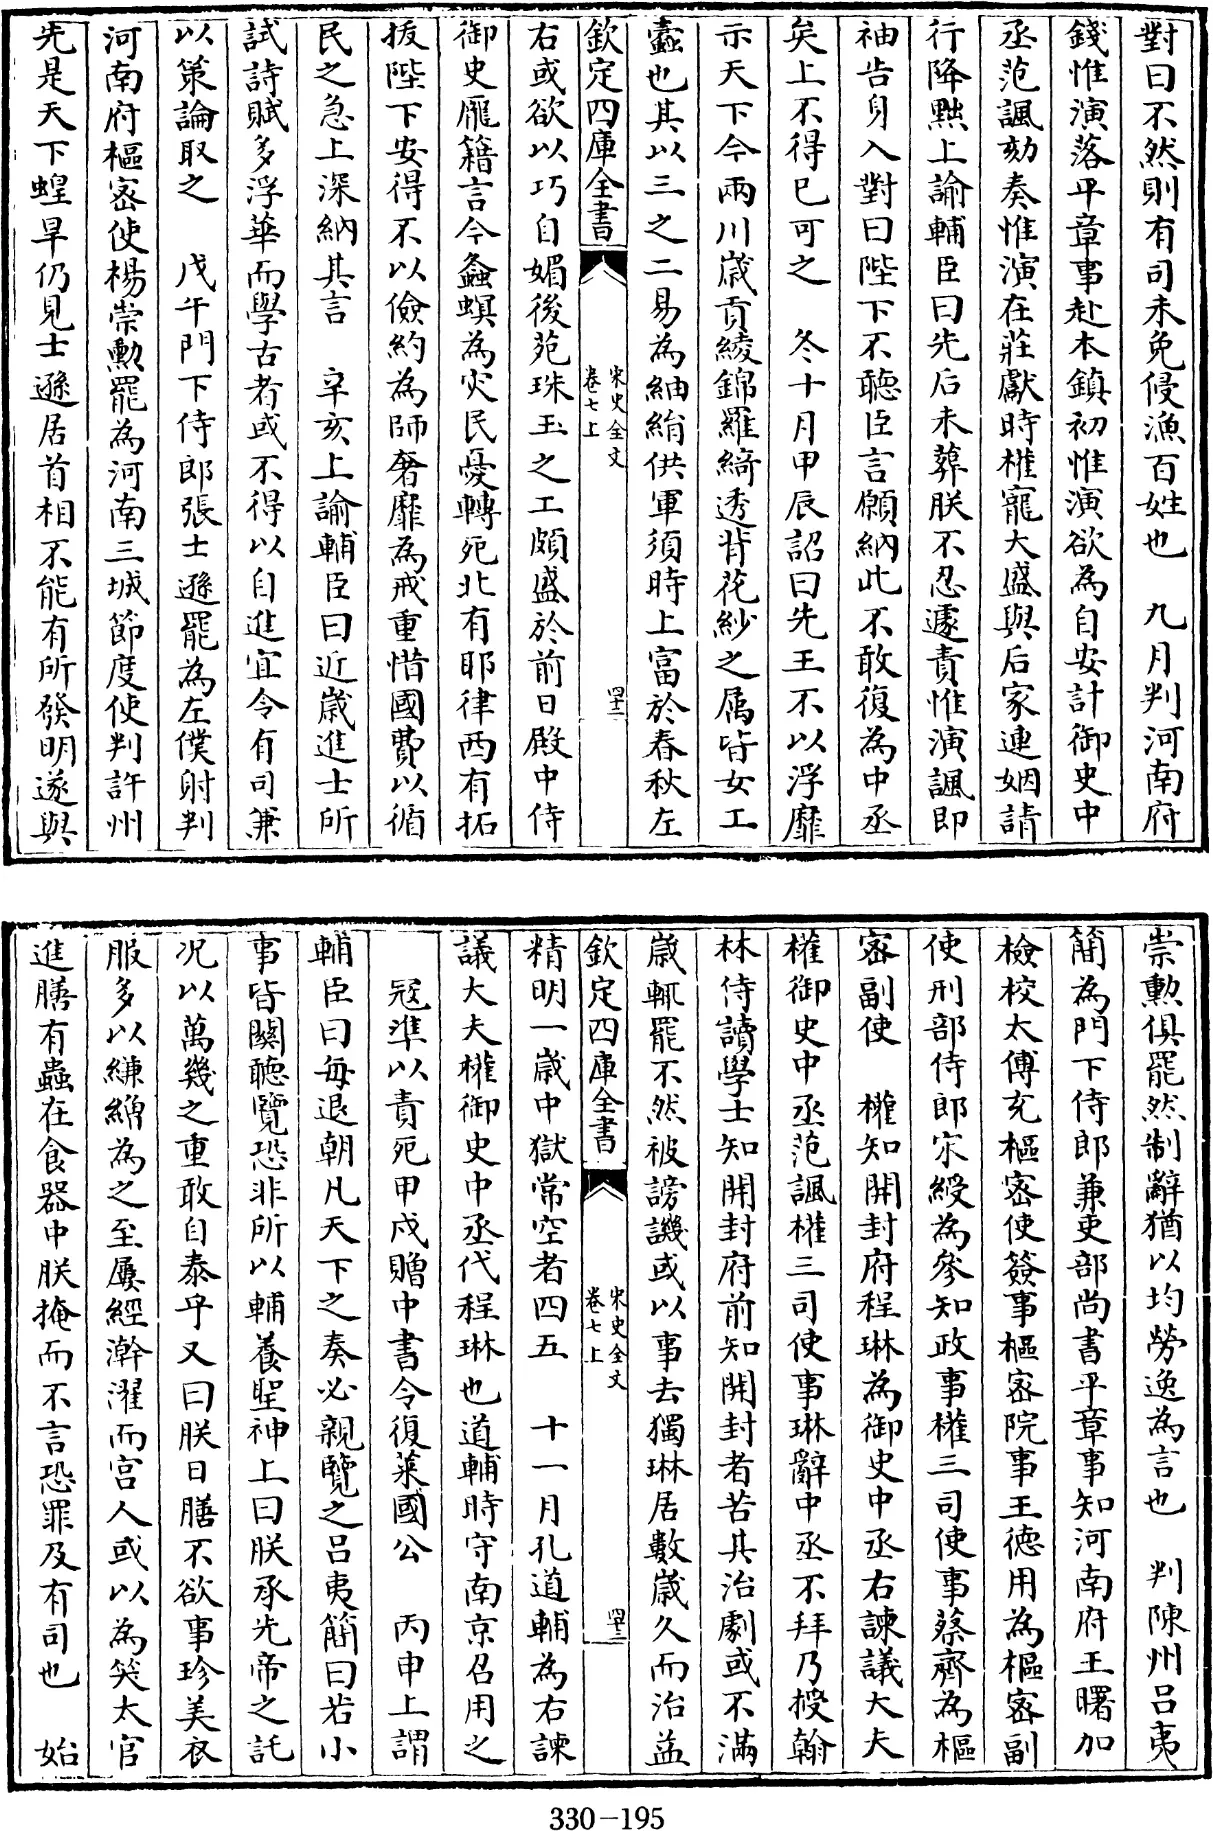 對曰不然則有司未免侵漁百姓也　九月判河南府
錢惟演落平章事赴本鎮初惟演欲為自安計御史中
丞范諷劾奏惟演在莊獻時權寵大盛與后家連姻請
行降黜上諭輔臣曰先后未葬朕不忍遽責惟演諷即
袖告身入對曰陛下不聽臣言願納此不敢復為中丞
矣上不得已可之　冬十月甲辰詔曰先王不以浮靡
示天下今兩川歲貢綾錦羅綺透背花紗之屬皆女工
蠹也其以三之二易為紬絹供軍須時上富於春秋左
欽定四庫全書
宋史全文
卷七上
四十二
右或欲以巧自媚後苑珠玉之工頗盛於前日殿中侍
御史龐籍言今螽螟為災民憂轉死北有耶律西有拓
拔陛下安得不以儉約為師奢靡為戒重惜國費以循
民之急上深納其言　辛亥上諭輔臣曰近歲進士所
試詩賦多浮華而學古者或不得以自進宜令有司兼
以策論取之　戊午門下侍郎張士遜罷為左僕射判
河南府樞密使楊崇勳罷為河南三城節度使判許州
先是天下蝗旱仍見士遜居首相不能有所發明遂與
崇勳俱罷然制辭猶以均勞逸為言也　判陳州呂夷
簡為門下侍郎兼吏部尚書平章事知河南府王曙加
檢校太傅充樞密使簽事樞密院事王德用為樞密副
使刑部侍郎宋綬為參知政事權三司使事蔡齊為樞
密副使　權知開封府程琳為御史中丞右諫議大夫
權御史中丞范諷權三司使事琳辭中丞不拜乃授翰
林侍讀學士知開封府前知開封者苦其治劇或不滿
歲輒罷不然被謗譏或以事去獨琳居數歲久而治益
欽定四庫全書
宋史全文
卷七上
四十三
精明一歲中獄常空者四五　十一月孔道輔為右諫
議大夫權御史中丞代程琳也道輔時守南京召用之
　寇準以責死甲戍贈中書令復萊國公　丙申上謂
輔臣曰每退朝凡天下之奏必親覽之呂夷簡曰若小
事皆關聽覽恐非所以輔養聖神上曰朕承先帝之託
况以萬幾之重敢自泰乎又曰朕日膳不欲事珍美衣
服多以縑繒為之至屢經澣濯而宮人或以為笑太官
進膳有蟲在食器中朕掩而不言恐罪及有司也　始
330-195